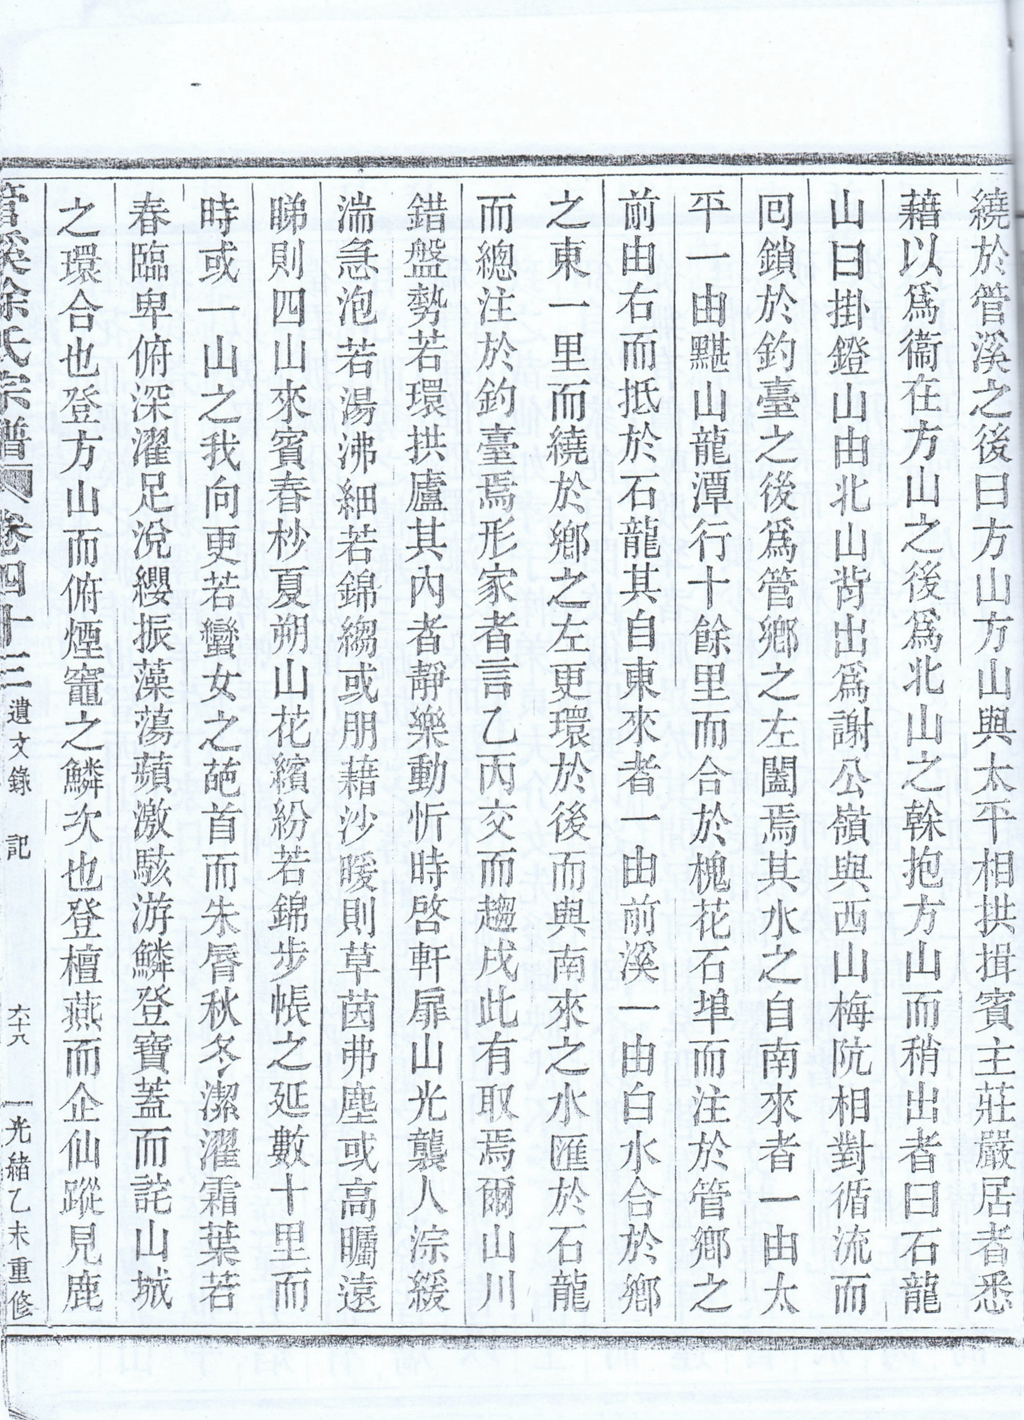 繞於管溪之後曰方山方山與太平相拱揖賓主莊嚴居者悉
藉以爲衞在方山之後爲北山之榦抱方山而稍出者曰石龍
山曰掛鐙山由北山背出爲謝公嶺與西山梅阬相對循流而
回鎖於釣臺之後爲管鄉之左闔焉其水之自南來者一由太
平一由黮山龍潭行十餘里而合於槐花石埠而注於管鄉之
前由右而抵於石龍其自東來者一由前溪一由白水合於鄉
之東一里而繞於鄉之左更環於後而與南來之水匯於石龍
而總注於釣臺焉形家者言乙丙交而趨戌此有取焉爾山川
錯盤勢若環拱廬其內者靜樂動忻時啓軒扉山光襲人淙緩
湍急泡若湯沸細若錦縐或朋藉沙暖則草茵弗塵或高矚遠
睇則四山來賓春杪夏朔山花繽紛若錦步帳之延數十里而
時或一山之我向更若蠻女之葩首而朱脣秋冬潔濯霜葉若
春臨卑俯深濯足涗纓振藻蕩蘋激駭游鱗登寶蓋而詫山城
之環合也登方山而俯煙竈之鱗次也登檀燕而企仙蹤見鹿
管溪徐氏宗譜 卷四十三 遺文錄 記 六十八 光緒乙未重修